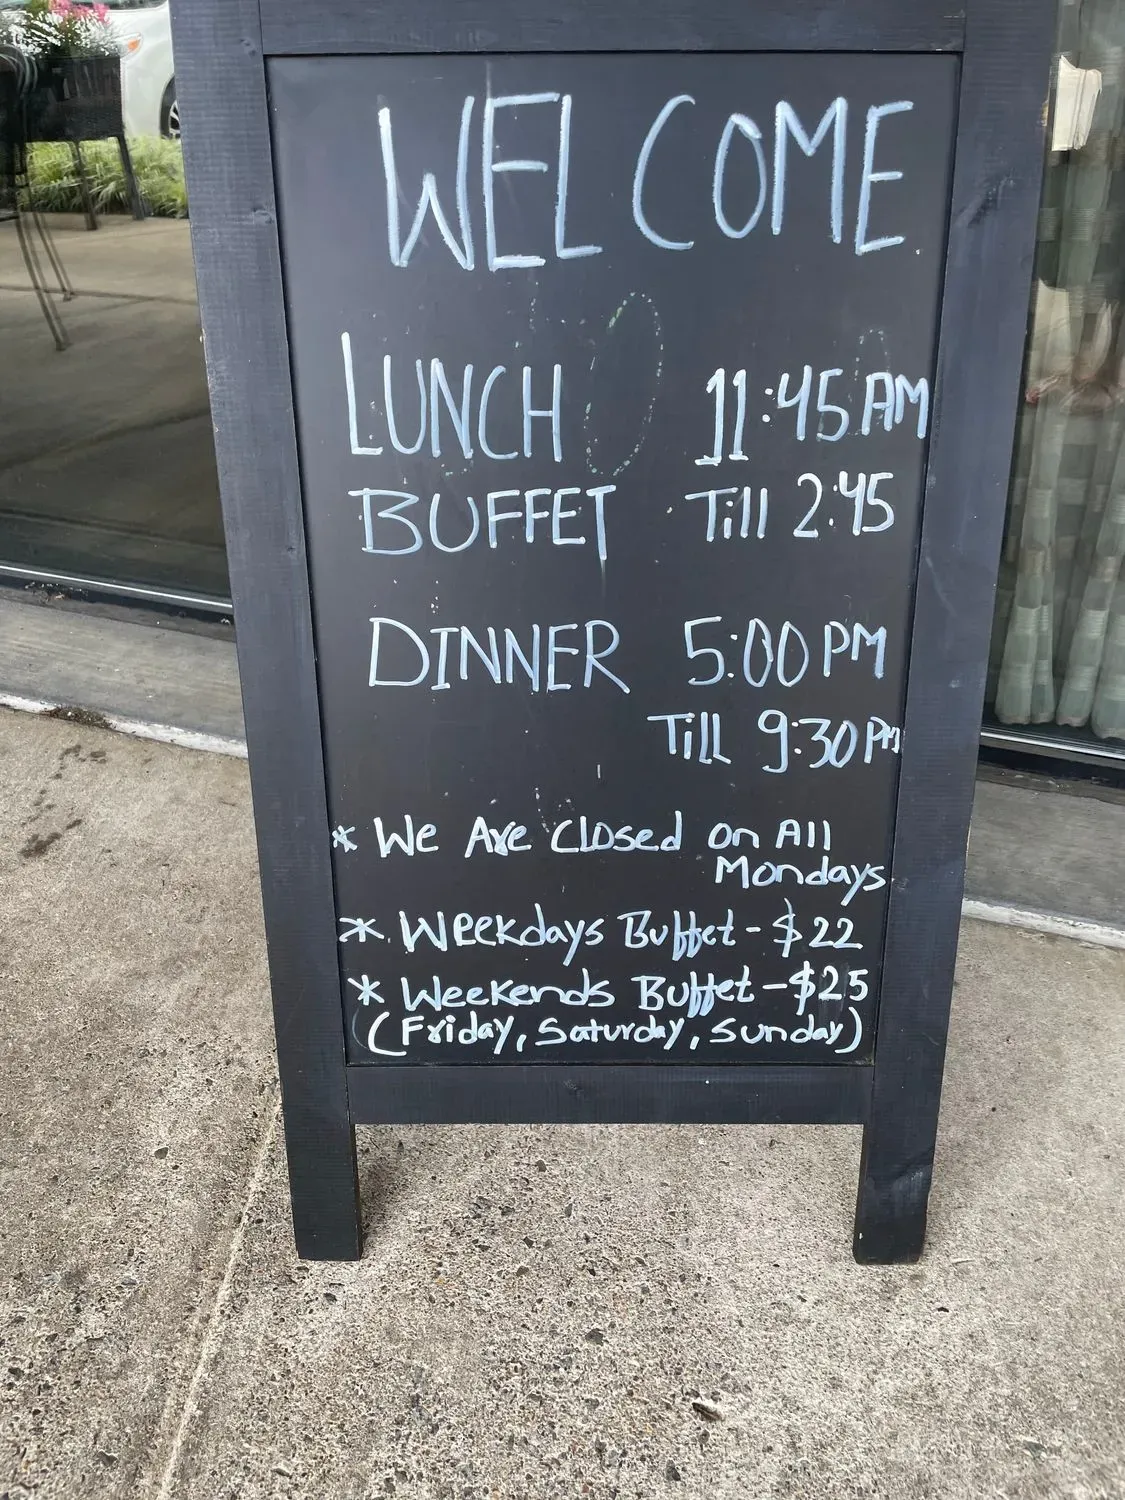 WELCOME
LUNCH 11:45 AM
BUFFET Till 2:45
DINNER 5:00 PM
Till 9:30 PM
* We Are Closed on All
Mondays
* Weekdays Buffet - $22
* Weekends Buffet - $25
(Friday, Saturday, Sunday)